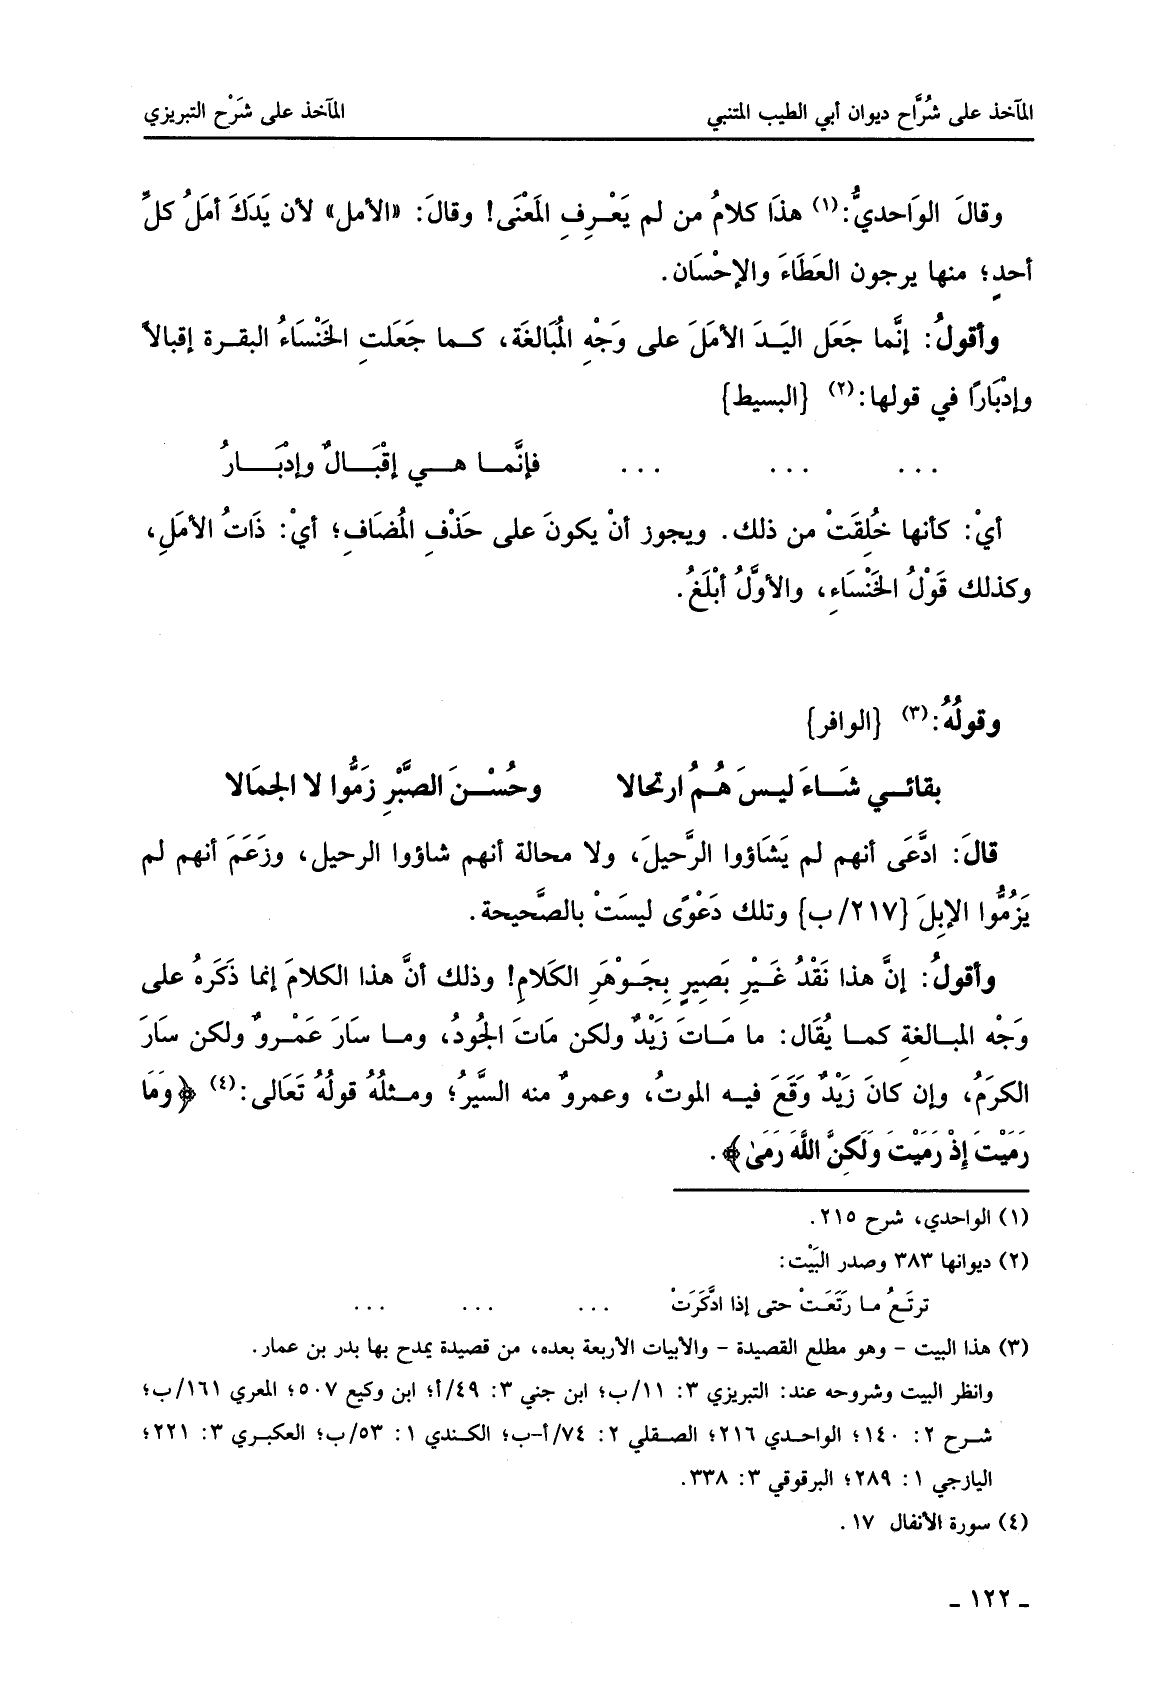 المآخذ على شُرَّاح ديوان أبي الطيب المتنبي المآخذ على شَرْح التبريزي
وقالَ الوَاحديُّ:(١) هذَا كلامُ من لم يَعْرِفِ المَعْنَى! وقالَ: «الأمل» لأن يَدَكَ أمَلُ كلِّ
أحدٍ؛ منها يرجون العَطَاءَ والإحْسَان.
وأقولُ: إنَّما جَعَل اليَدَ الأمَلَ على وَجْهِ المُبَالغَة، كما جَعَلتِ الخَنْسَاءُ البقرة إقبالاً
وإدْبَارًا في قولها:(٢) {البسيط}
... ... ... فإنَّما هي إقْبَالٌ وإدْبَارُ
أيْ: كأنها خُلِقَتْ من ذلك. ويجوز أنْ يكونَ على حَذْفِ المُضَافِ؛ أيْ: ذَاتُ الأمَلِ،
وكذلك قَوْلُ الخَنْسَاءِ، والأوَّلُ أبْلَغُ.
وقولُهُ:(٣) {الوافر}
بقائي شَاءَ ليسَ هُمُ ارتحالا وحُسْنَ الصَّبْرِ زَمُّوا لا الجمَالا
قالَ: ادَّعَى أنهم لم يَشَاؤوا الرَّحيلَ، ولا محالة أنهم شاؤوا الرحيل، وزَعَمَ أنهم لم
يَزُمُّوا الإبلَ {٢١٧/ب} وتلك دَعْوًى ليسَتْ بالصَّحيحة.
وأقولُ: إنَّ هذا نَقْدُ غَيْرِ بَصِيرٍ بجَوْهَرِ الكَلامِ! وذلك أنَّ هذا الكلامَ إنما ذَكَرهُ على
وَجْه المبالغة كما يُقَال: ما مَاتَ زَيْدٌ ولكن مَاتَ الجُودُ، وما سَارَ عَمْروٌ ولكن سَارَ
الكرَمُ، وإن كانَ زَيْدٌ وَقَعَ فيه الموتُ، وعمروٌ منه السَّيرُ؛ ومثلُهُ قولُهُ تَعَالى:(٤) ﴿وَمَا
رَمَيْتَ إِذْ رَمَيْتَ وَلَكِنَّ اللَّهَ رَمَىٰ﴾.
(١) الواحدي، شرح ٢١٥.
(٢) ديوانها ٣٨٣ وصدر البَيْت:
ترتَعُ ما رَتَعَتْ حتى إذا ادَّكَرَتْ ... ... ...
(٣) هذا البيت - وهو مطلع القصيدة - والأبيات الأربعة بعده، من قصيدة يمدح بها بدر بن عمار.
وانظر البيت وشروحه عند: التبريزي ٣: ١١/ب؛ ابن جني ٣: ٤٩/أ؛ ابن وكيع ٥٠٧؛ المعري ١٦١/ب؛
شرح ٢: ١٤٠؛ الواحدي ٢١٦؛ الصقلي ٢: ٧٤/أ-ب؛ الكندي ١: ٥٣/ب؛ العكبري ٣: ٢٢١؛
اليازجي ١: ٢٨٩؛ البرقوقي ٣: ٣٣٨.
(٤) سورة الأنفال ١٧.
- ١٢٢ -